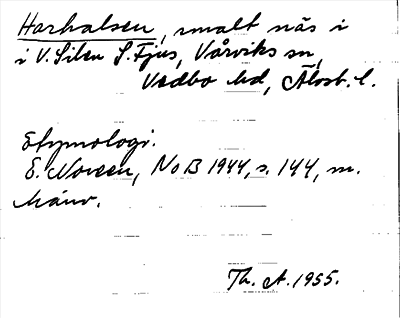 Harhalsen, smalt näs i
i V. Silen S. Fjus, Vårviks sn,
Vedbo hd, Älvsb. l.
Etymologi.
E. Noreen, NoB 1944, s. 144, m.
hänv.
Th. A. 1955.